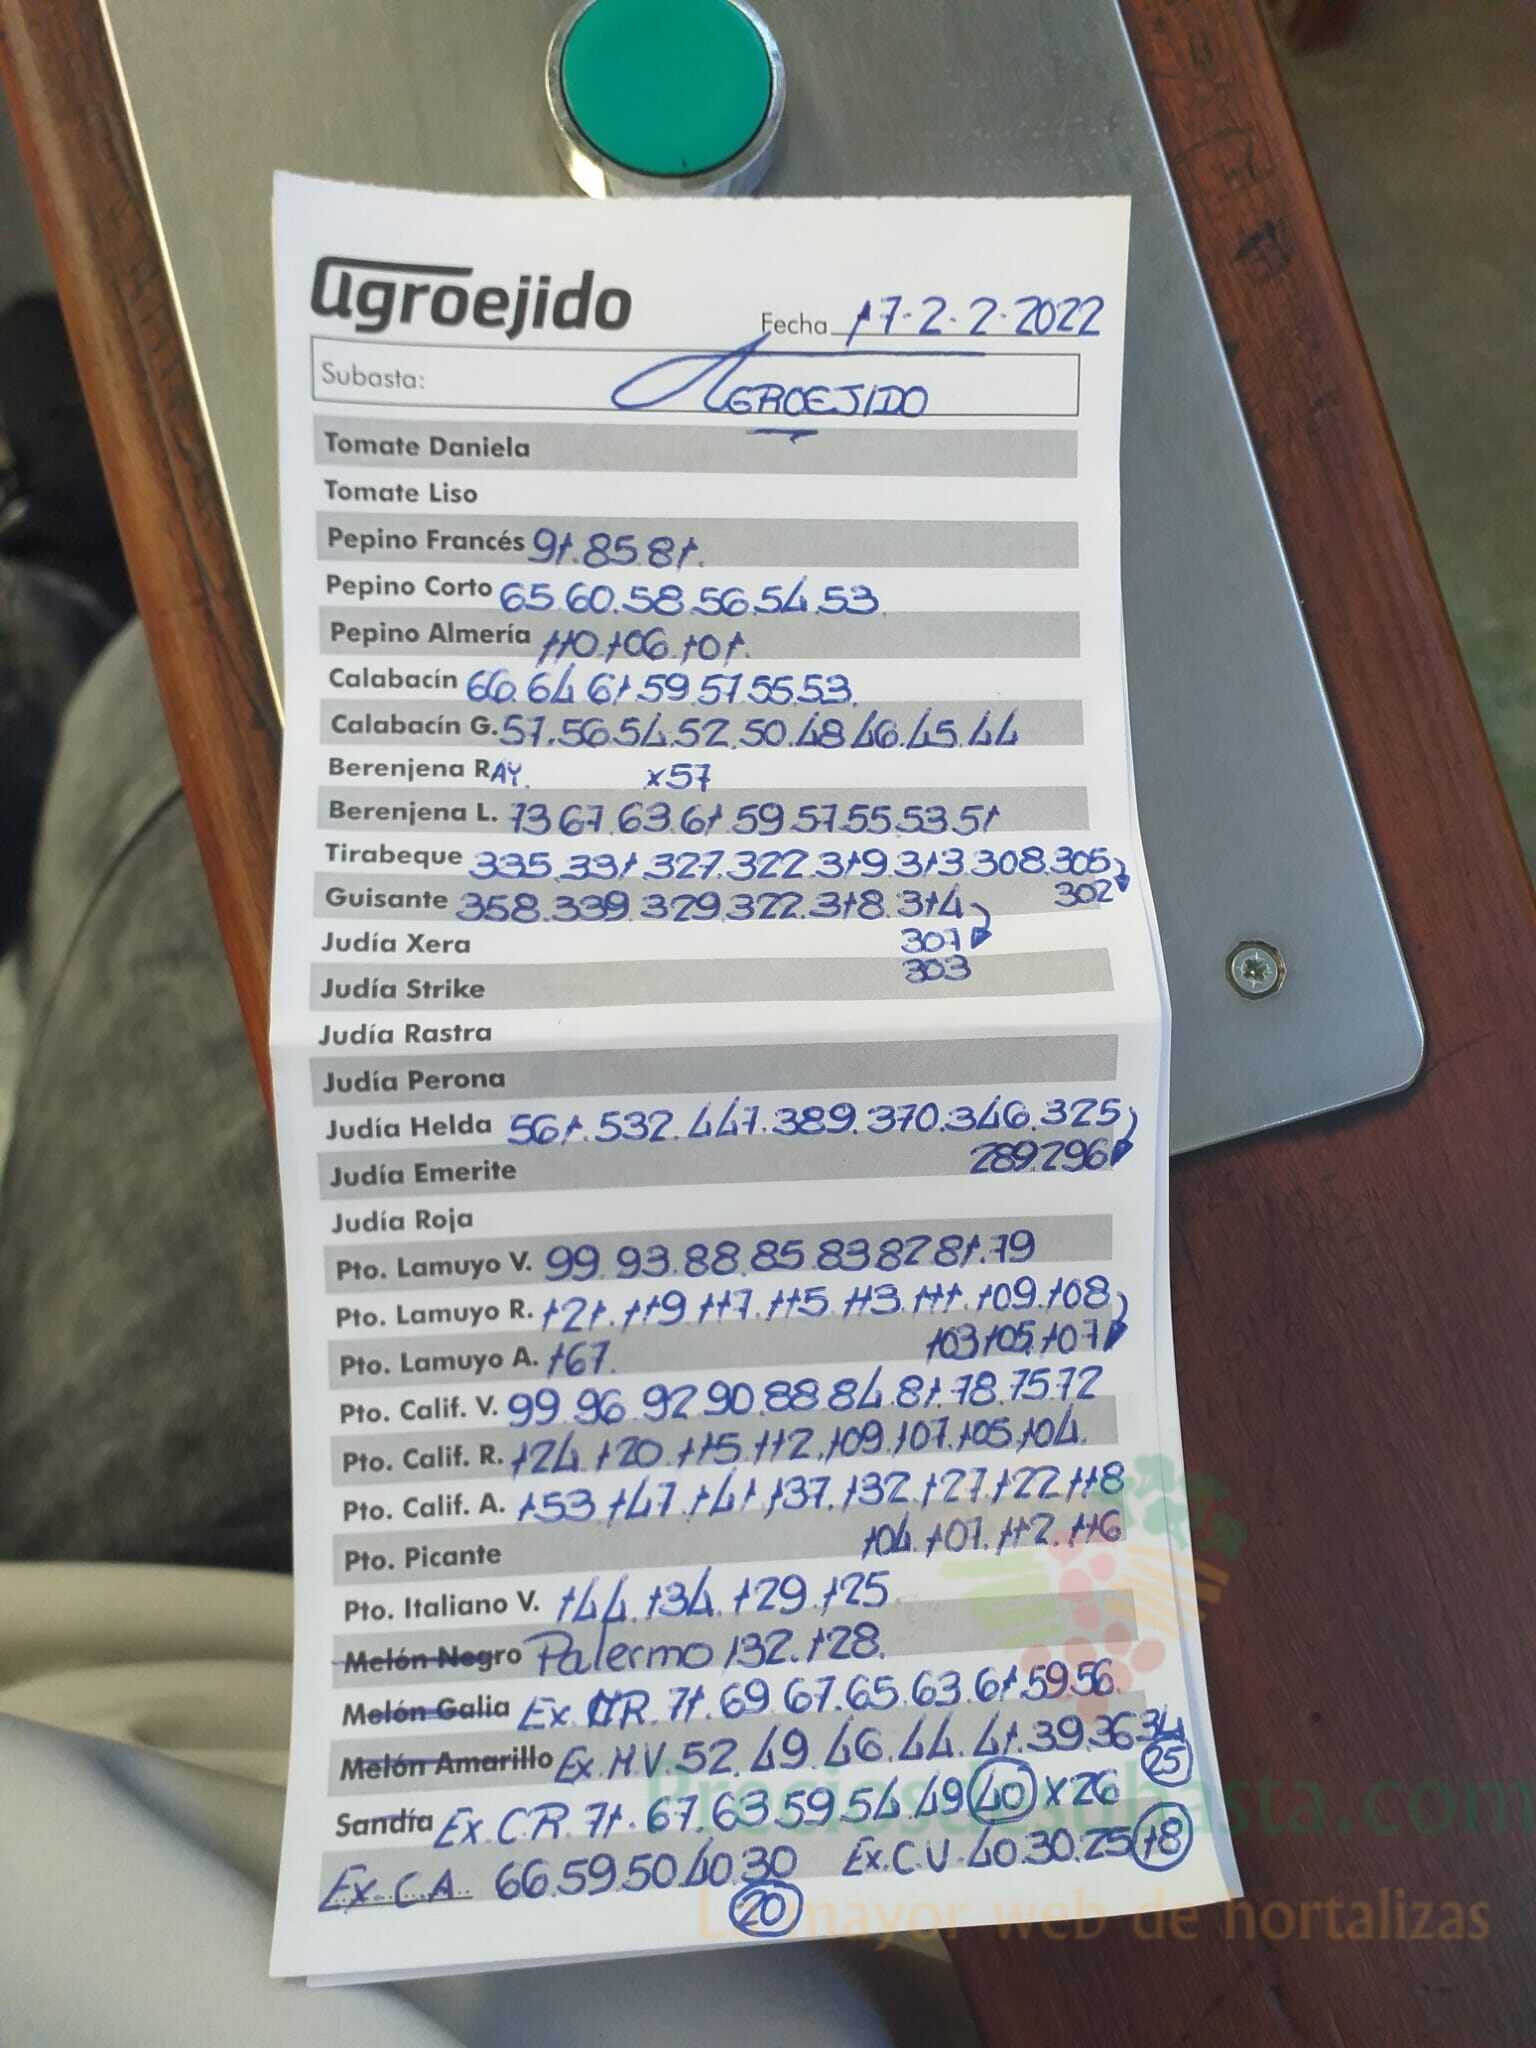 agroejido
Fecha 17-2-2-2022
Subasta: AGROEJIDO
Tomate Daniela
Tomate Liso
Pepino Francés 91.85.81.
Pepino Corto 65.60.58.56.54.53.
Pepino Almería 110.106.101.
Calabacín 66.64.61.59.57.55.53.
Calabacín G. 57.56.54.52.50.48.46.45.44
Berenjena RAY. x57
Berenjena L. 73.67.63.61.59.57.55.53.51
Tirabeque 335.331.327.322.319.313.308.305
302
Guisante 358.339.329.322.318.314
307
Judía Xera
303
Judía Strike
Judía Rastra
Judía Perona
Judía Helda 561.532.447.389.370.346.325
289.296
Judía Emerite
Judía Roja
Pto. Lamuyo V. 99.93.88.85.83.82.81.79
Pto. Lamuyo R. 121.119.117.115.113.111.109.108
103.105.107
Pto. Lamuyo A. 167.
Pto. Calif. V. 99.96.92.90.88.84.81.78.75.72
Pto. Calif. R. 124.120.115.112.109.107.105.104.
Pto. Calif. A. 153.147.141.137.132.127.122.118
104.107.112.116
Pto. Picante
Pto. Italiano V. 144.134.129.125
Melón Negro Palermo 132.128.
Melón Galia Ex. MR. 71.69.67.65.63.61.59.56.
Melón Amarillo Ex. M.V. 52.49.46.44.41.39.36.34
25
Sandía Ex. C.R. 71.67.63.59.54.49 40 x26
Ex. C.A. 66.59.50.40.30 Ex. C.V. 40.30.25 18
20
Preciosdesubasta.com
La mayor web de hortalizas